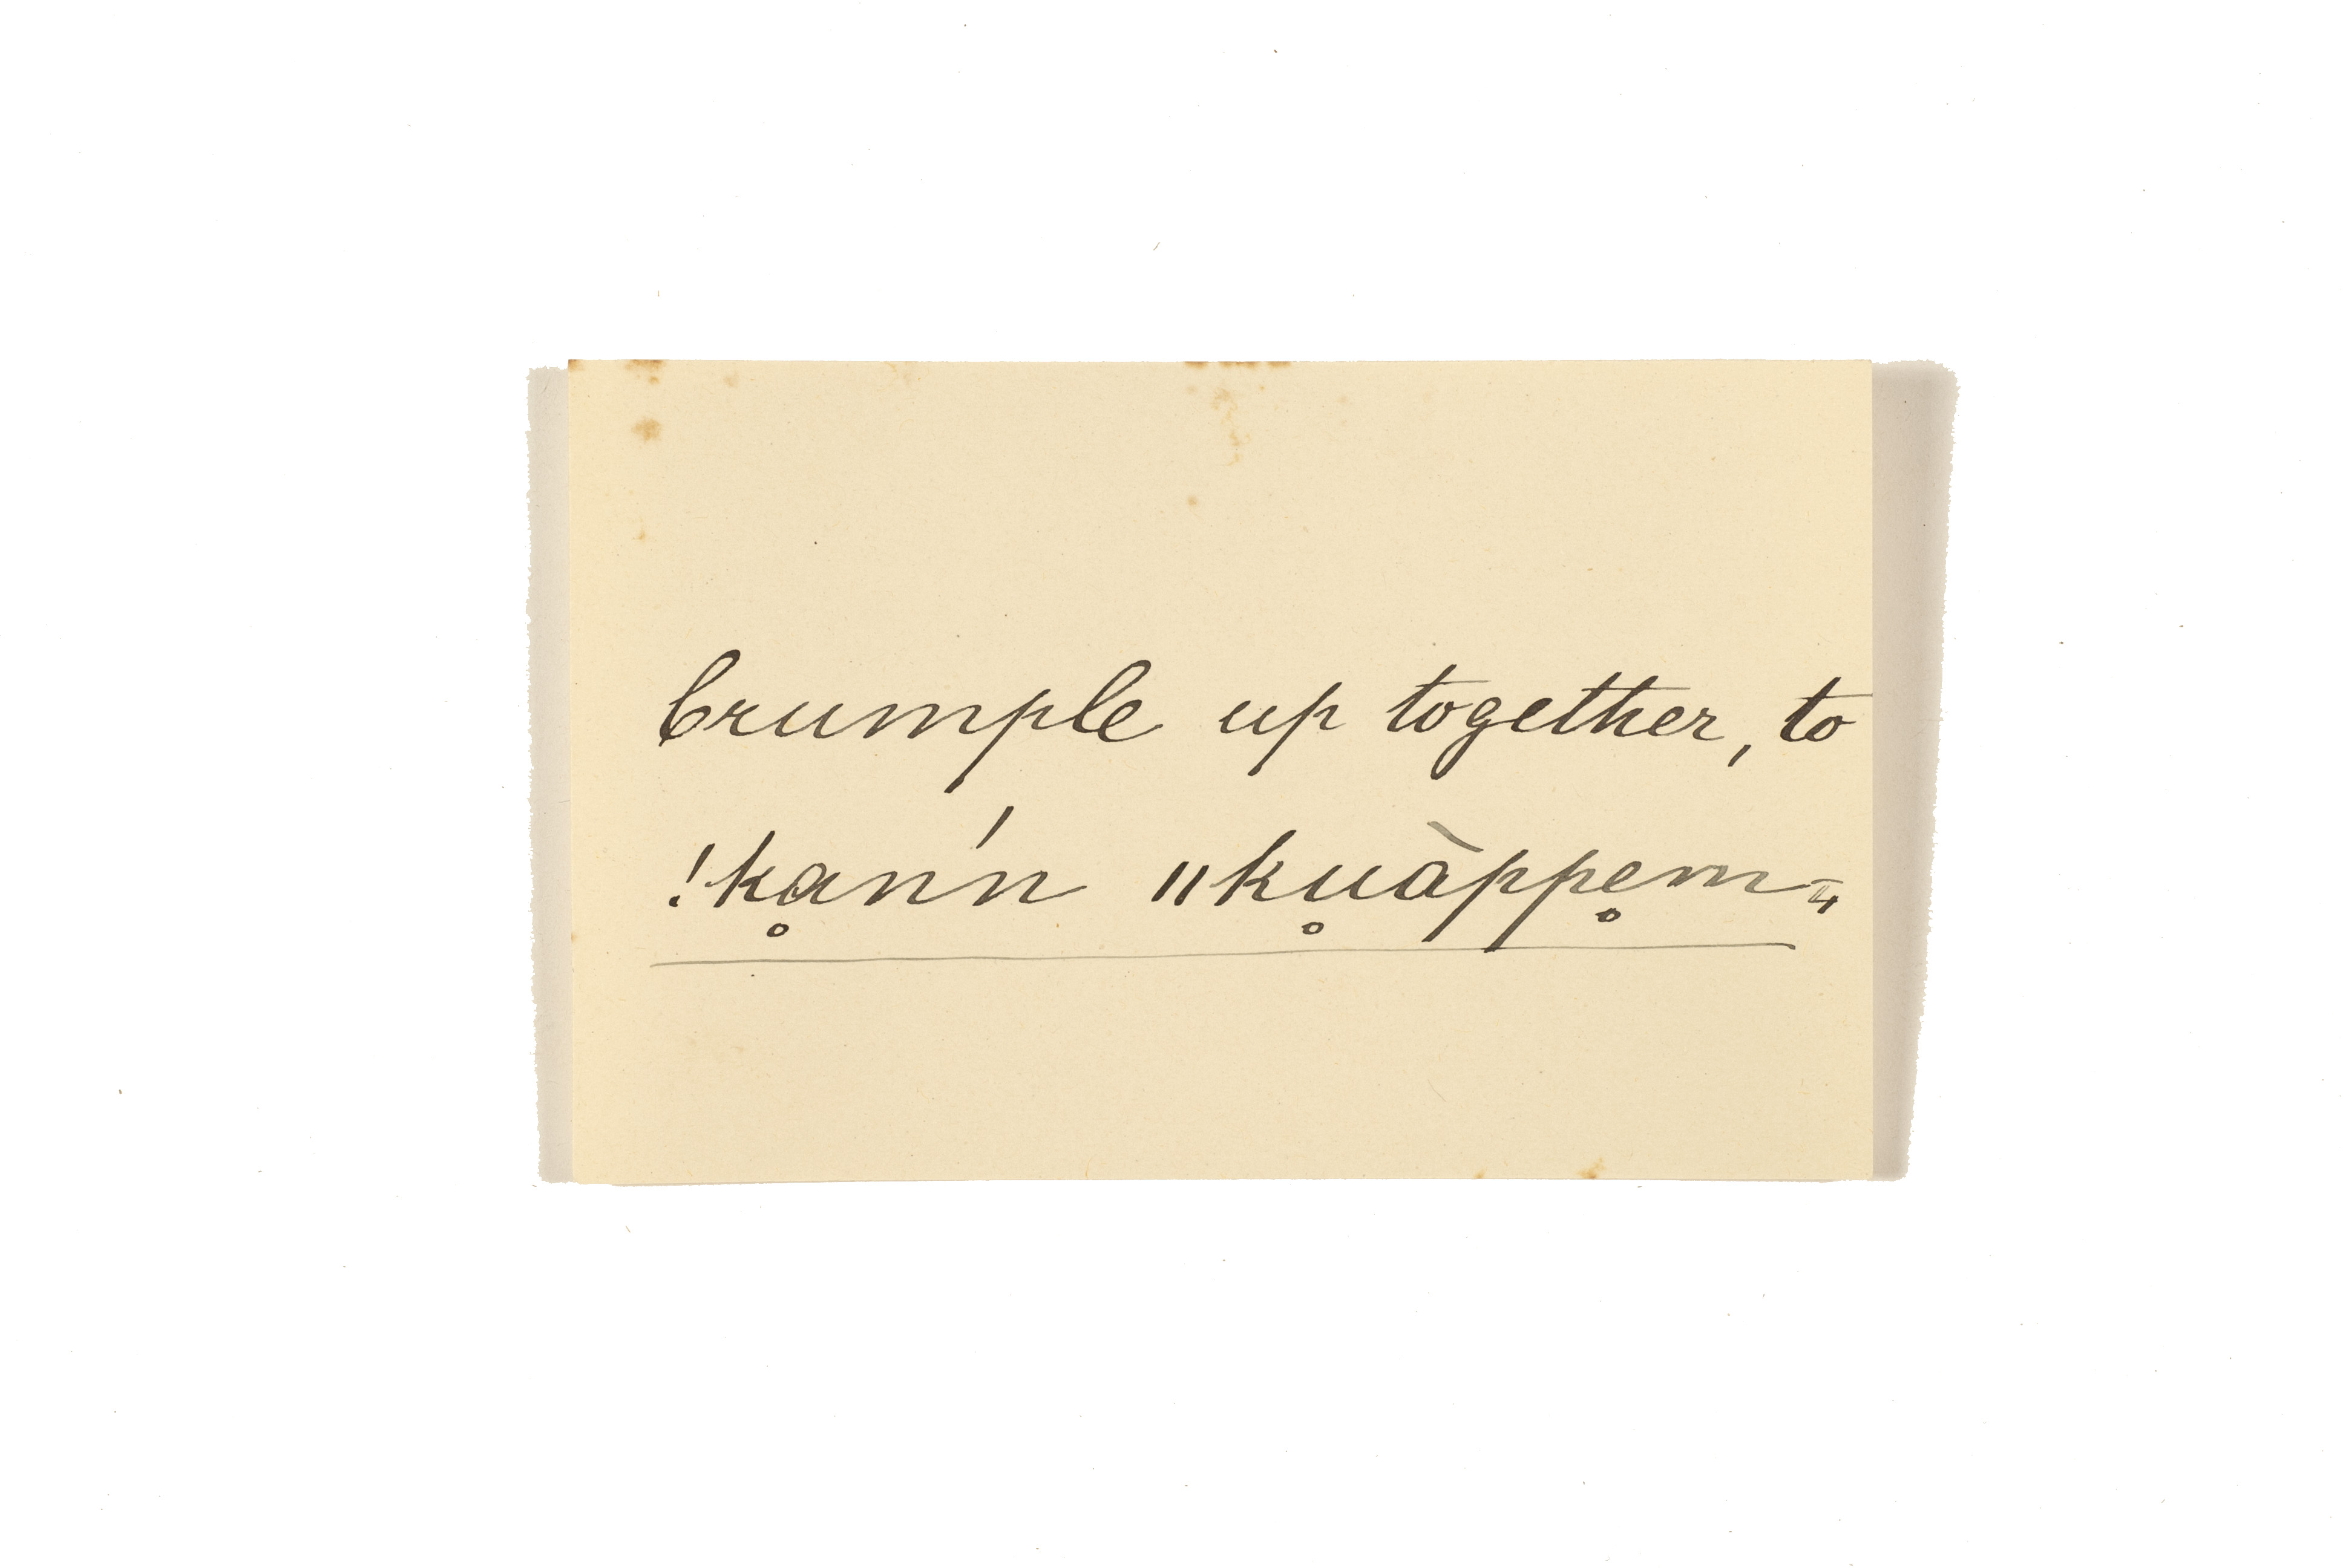 Crumple up together, to
!kḁn'n ǁku̥àppe̥m=,,